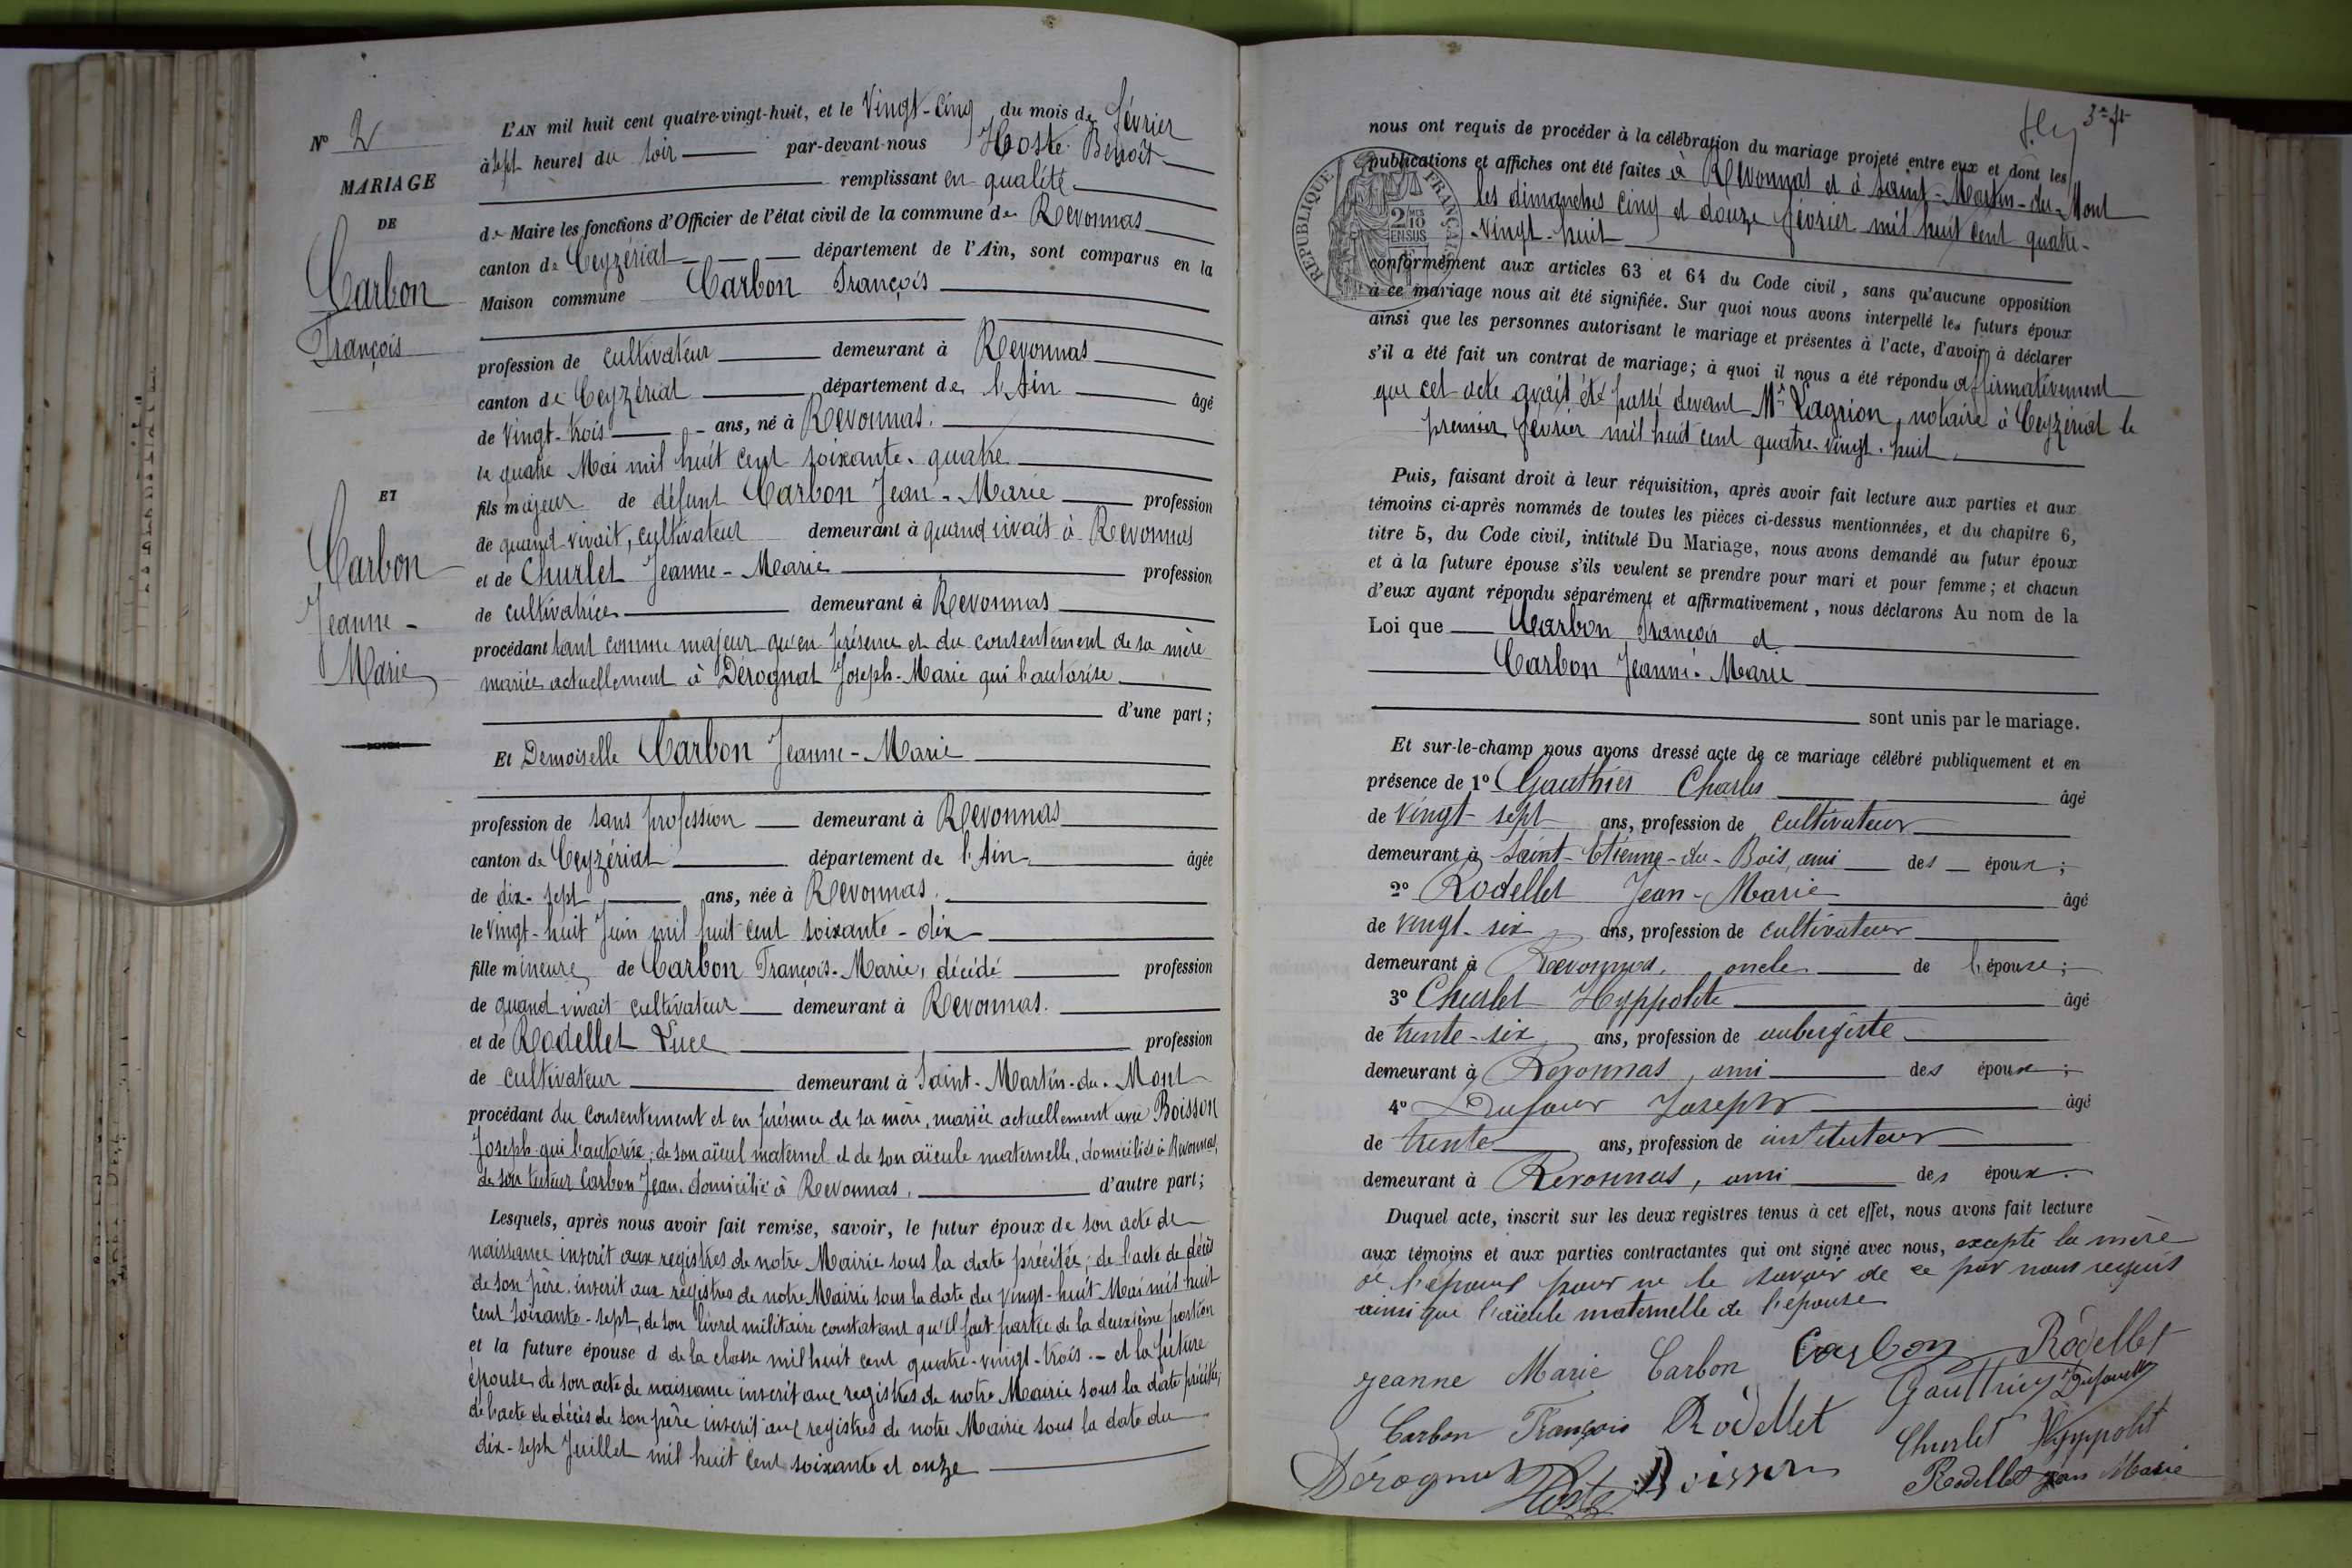 N° 2
MARIAGE
DE
Carbon
François
ET
Carbon
Jeanne-
Marie
L'AN mil huit cent quatre-vingt-huit, et le vingt-cinq du mois de février
à sept heures du soir par-devant-nous Hoste Benoît
remplissant en qualité
de Maire les fonctions d'Officier de l'état civil de la commune de Revonnas
canton de Ceyzériat département de l'Ain, sont comparus en la
Maison commune Carbon François
profession de cultivateur demeurant à Revonnas
canton de Ceyzériat département de l'Ain âgé
de vingt-trois ans, né à Revonnas.
le quatre Mai mil huit cent soixante-quatre
fils majeur de défunt Carbon Jean-Marie profession
de quand vivait, cultivateur demeurant à quand vivait à Revonnas
et de Churlet Jeanne-Marie profession
de cultivatrice demeurant à Revonnas
procédant tant comme majeur qu'en présence et du consentement de sa mère
mariée actuellement à Dérognat Joseph-Marie qui l'autorise
d'une part;
Et Demoiselle Carbon Jeanne-Marie
profession de sans profession demeurant à Revonnas
canton de Ceyzériat département de l'Ain âgée
de dix-sept ans, née à Revonnas.
le vingt-huit Juin mil huit cent soixante-dix
fille mineure de Carbon François-Marie, décédé profession
de quand vivait cultivateur demeurant à Revonnas.
et de Rodellet Luce profession
de cultivateur demeurant à Saint-Martin-du-Mont
procédant du consentement et en présence de sa mère, mariée actuellement avec Boisson
Joseph qui l'autorise; de son aïeul maternel et de son aïeule maternelle, domiciliés à Revonnas,
de son tuteur Carbon Jean, domicilié à Revonnas, d'autre part;
Lesquels, après nous avoir fait remise, savoir, le futur époux de son acte de
naissance inscrit aux registres de notre Mairie sous la date précitée; de l'acte de décès
de son père, inscrit aux registres de notre Mairie sous la date du vingt-huit Mai mil huit
cent soixante-sept, de son livret militaire constatant qu'il fait partie de la deuxième portion
et la future épouse d de la classe mil huit cent quatre-vingt-trois.- et la future
épouse de son acte de naissance inscrit aux registres de notre Mairie sous la date précitée;
de l'acte de décès de son père inscrit aux registres de notre Mairie sous la date du
dix-sept Juillet mil huit cent soixante et onze
nous ont requis de procéder à la célébration du mariage projeté entre eux et dont les
publications et affiches ont été faites à Revonnas et à Saint-Martin-du-Mont
les dimanches cinq et douze février mil huit cent quatre-
-vingt-huit
RÉPUBLIQUE FRANÇAISE
2 MES 10
EN SUS
conformément aux articles 63 et 64 du Code civil, sans qu'aucune opposition
à ce mariage nous ait été signifiée. Sur quoi nous avons interpellé les futurs époux
ainsi que les personnes autorisant le mariage et présentes à l'acte, d'avoir à déclarer
s'il a été fait un contrat de mariage; à quoi il nous a été répondu affirmativement
que cet acte avait été passé devant Mr Lagrion, notaire à Ceyzériat le
premier février mil huit cent quatre-vingt-huit.
Puis, faisant droit à leur réquisition, après avoir fait lecture aux parties et aux
témoins ci-après nommés de toutes les pièces ci-dessus mentionnées, et du chapitre 6,
titre 5, du Code civil, intitulé Du Mariage, nous avons demandé au futur époux
et à la future épouse s'ils veulent se prendre pour mari et pour femme; et chacun
d'eux ayant répondu séparément et affirmativement, nous déclarons Au nom de la
Loi que Carbon François et
Carbon Jeanne-Marie
sont unis par le mariage.
Et sur-le-champ nous avons dressé acte de ce mariage célébré publiquement et en
présence de 1° Gauthier Charles âgé
de vingt-sept ans, profession de cultivateur
demeurant à Saint-Etienne-du-Bois, ami des époux;
2° Rodellet Jean-Marie âgé
de vingt-six ans, profession de cultivateur
demeurant à Revonnas, oncle de l'épouse;
3° Churlet Hyppolite âgé
de trente-six ans, profession de aubergiste
demeurant à Revonnas, ami des époux;
4° Dufour Joseph âgé
de trente ans, profession de instituteur
demeurant à Revonnas, ami des époux.
Duquel acte, inscrit sur les deux registres tenus à cet effet, nous avons fait lecture
aux témoins et aux parties contractantes qui ont signé avec nous, excepté la mère
de l'époux pour ne le savoir de ce par nous requis
ainsi que l'aïeule maternelle de l'épouse
Jeanne Marie Carbon Carbon Rodellet
Carbon François Rodellet Gauthier Dufour
Dérognat Hoste Boisson Churlet Hyppolit
Rodellet Jean Marie